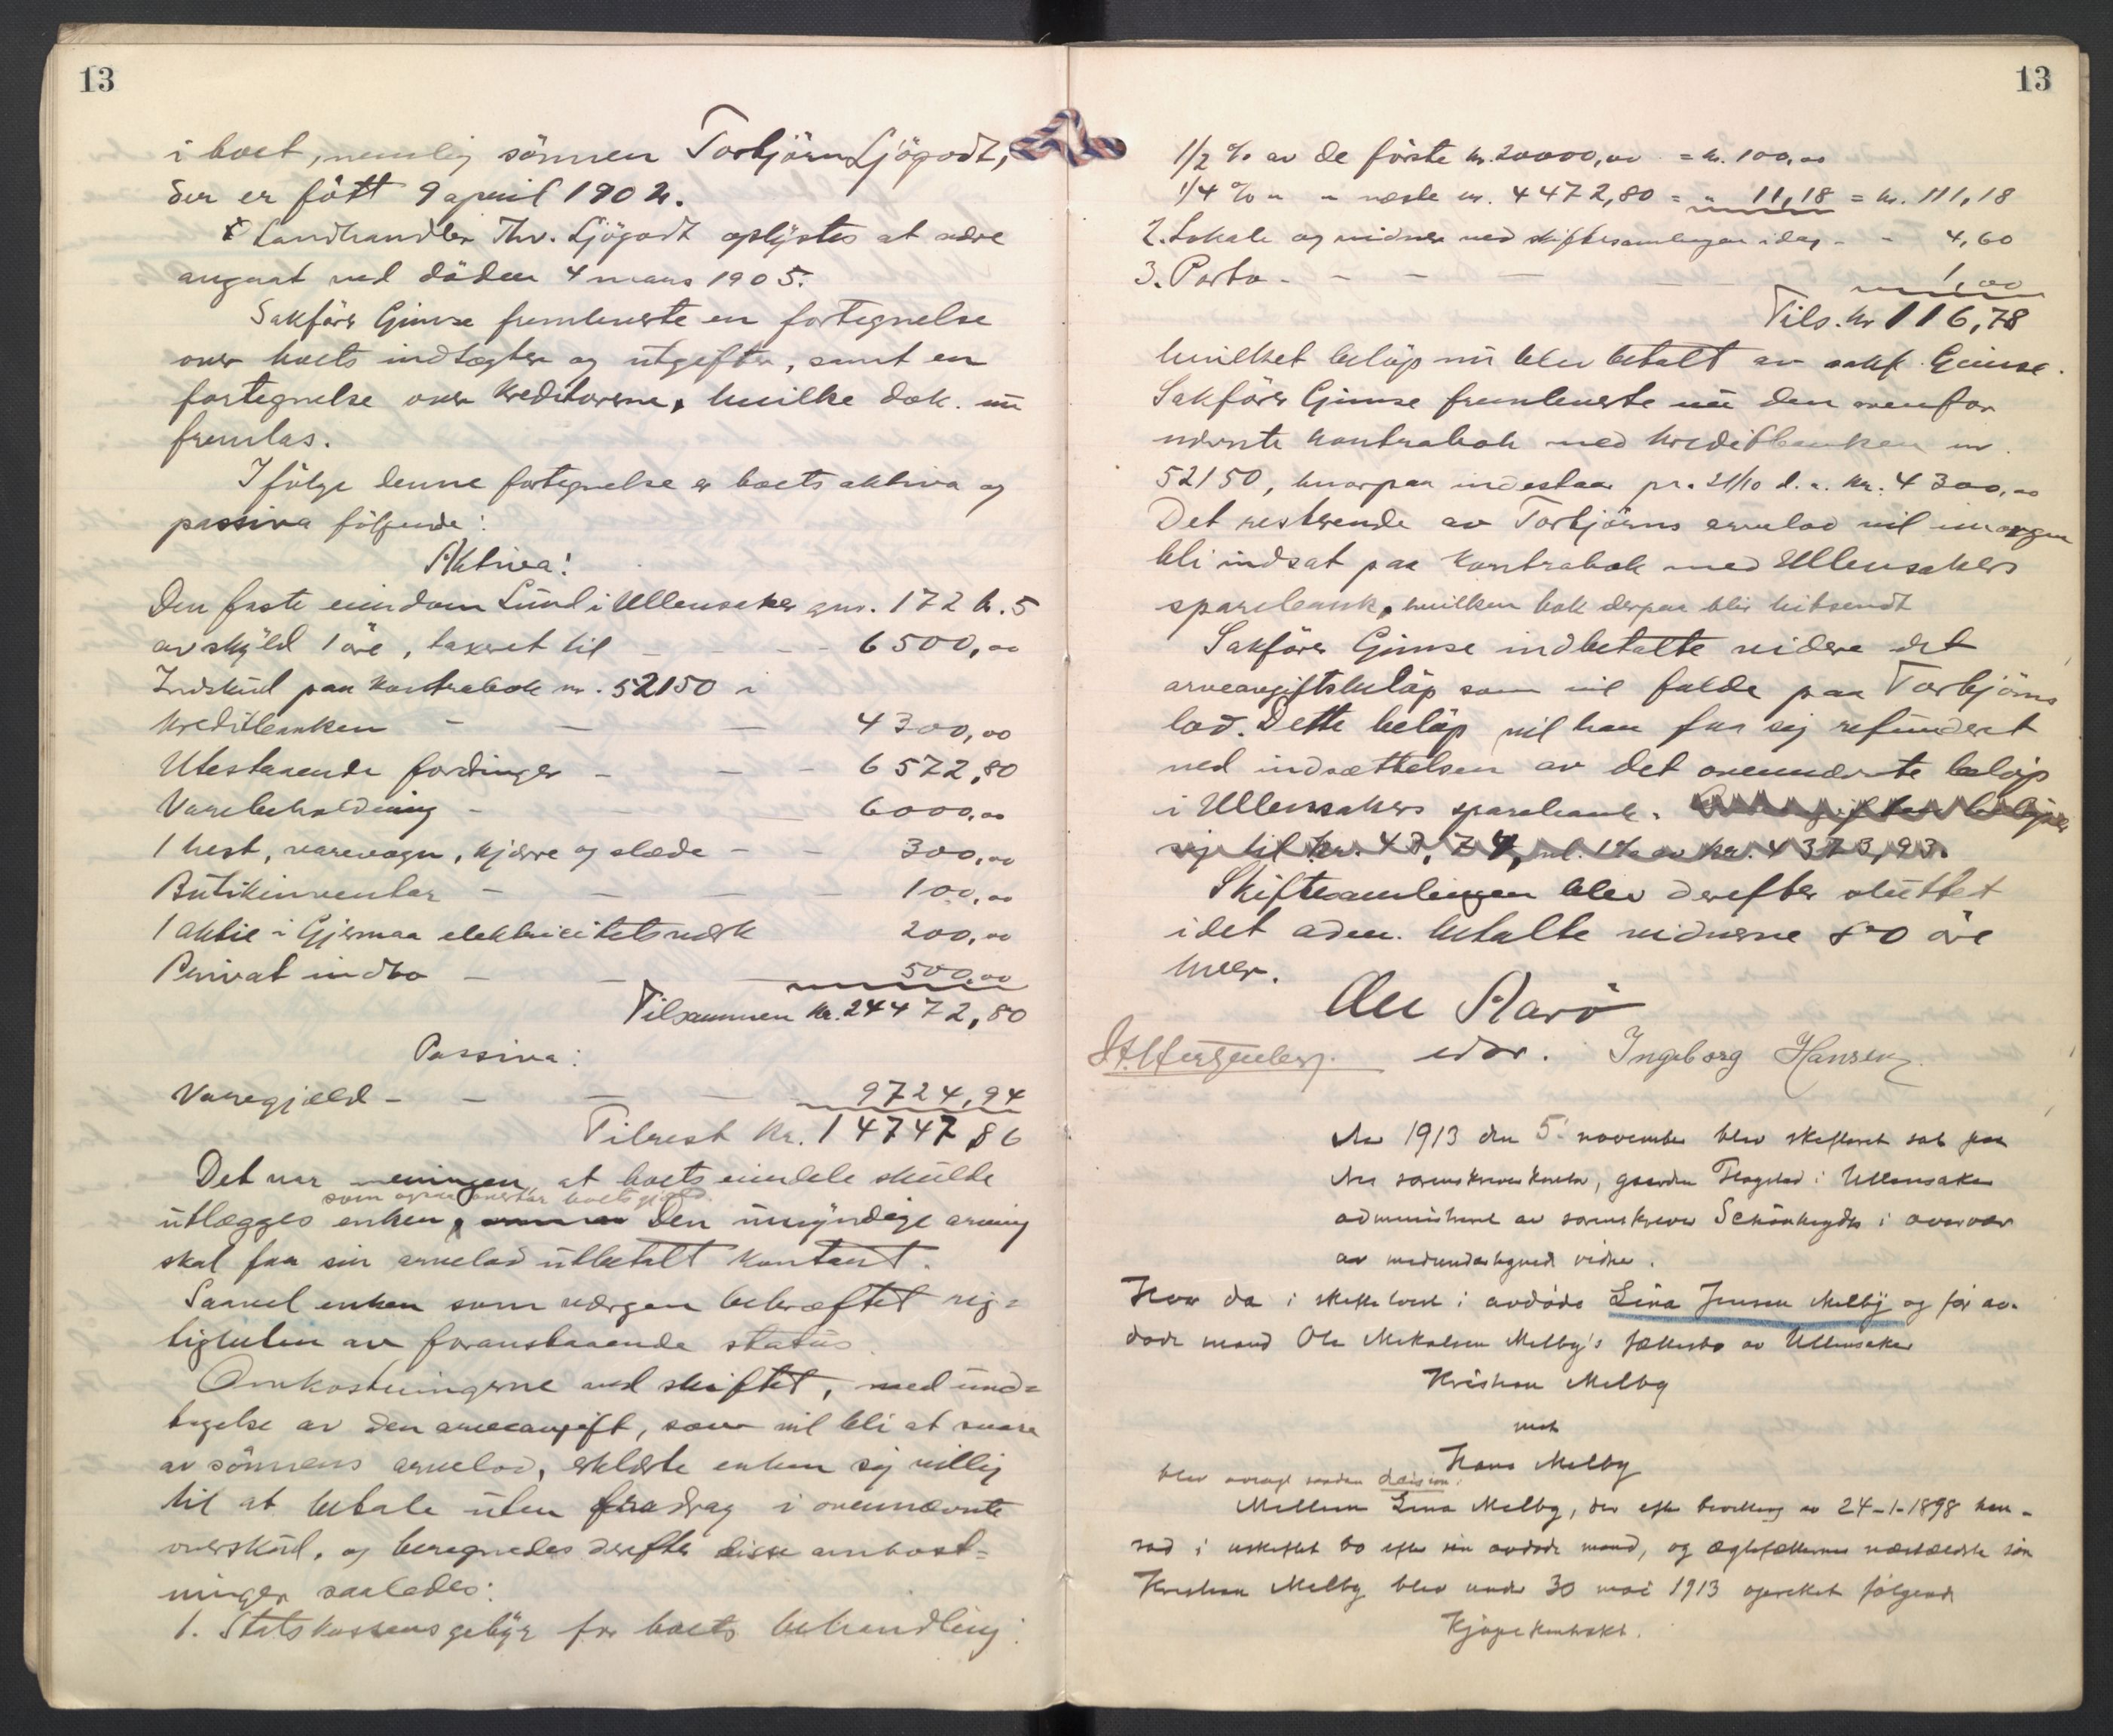 13
i boet, nemlig sönnen Torbjörn Ljögodt,
der er född 9 april 1902.
Landhandler Thv. Ljögodt oplystes at være
angivet ved döden 4 mars 1905.
Sakförer Gimse fremleverte en fortegnelse
over boets indtægter og utgifter, samt en
fortegnelse over kreditorerne, hvilke dok. nu
fremlas.
Ifölge denne fortegnelse er boets aktiva og
passiva fölgende:
Aktiva:
Den faste eiendom Lund i Ullensaker gnr. 172 b. 5
av skyld 1 öre, taxeret til - - - - 6500,00
Indskud paa kontrabok nr. 52150 i
Kreditbanken - - - 4300,00
Utestaaende fordringer - - - 6572,80
Varebeholdning - - 6000,00
1 hest, varevogn, kjærre og slæde - - 300,00
Butikinventar - - - 100,00
1 aktie i Gjermaa elektricitetsverk 200,00
Privat indbo - - - 500,00
Tilsammen kr. 24472,80
Passiva:
Varegjæld - - - - 9724,94
Tilrest kr. 14747,86
Det var meningen, at boets eiendele skulde
som ogsaa overtar boets gjæld.
utlægges enken, Den umyndige arving
skal faa sin arvelod utbetalt kontant.
Saavel enken som værgen bekræftet rig-
tigheten av foranstaaende status.
Omkostningerne ved skiftet, med und-
tagelse av den arveavgift, som vil bli at svare
av sönnens arvelod, erklærte enken sig villig
til at betale uten fradrag i ovennævnte
overskud, og beregnedes derefter disse omkost-
ninger saaledes:
1. Statskassens gebyr for boets behandling:
13
1/2 % av de förste kr. 20000,00 = kr. 100,00
1/4 % " " næste kr. 4472,80 = " 11,18 = kr. 111,18
2. Lokale og vidner ved skiftesamlingen idag - - 4,60
3. Porto - - - - 1,00
Tils. kr 116,78
hvilket belöp nu blev betalt av sakf. Gimse.
Sakförer Gimse fremleverte nu den ovenfor
nævnte kontrabok med Kreditbanken nr.
52150, hvorpaa indestaar pr. 21/10 d. a. kr. 4300,00
Det resterende av Torbjörns arvelod vil imorgen
bli indsat paa kontrabok med Ullensakers
sparebank, hvilken bok derpaa blir hitsendt
Sakförer Gimse indbetalte videre det
arveavgiftsbelöp som vil falde paa Torbjörns
lod. Dette belöp vil han faa sig refundert
ved indsættelsen av det ovennævnte belöp
i Ullensakers sparebank. Arveavgiften belöper
sig til kr. 43,74, nl. 1% av kr. 4373,93.
Skiftesamlingen blev derefter sluttet
idet adm. betalte vidnerne 80 öre
hver.
Aarö
edsv. Ingeborg Hansen
Aar 1913 den 5. november blev skifteret sat paa
sorenskriverkontor, gaarden Hogstad i Ullensaker
administrert av sorenskriver Schönheyder i overvær
av medundertegnede vidner.
Hvor da i skiftetvist i avdöde Lina Jensen Melby og för av-
döde mand Ole Mikalsen Melby's fællesbo av Ullensaker
Kristian Melby
mot
Hans Melby
blev avsagt saadan decision:
Mellem Lina Melby, der efter bevilling av 24-1-1898 hen-
sad i uskiftet bo efter sin avdöde mand, og ægtefællernes næstældste sön
Kristian Melby blev under 30 mai 1913 oprettet fölgende
Kjöpekontrakt.